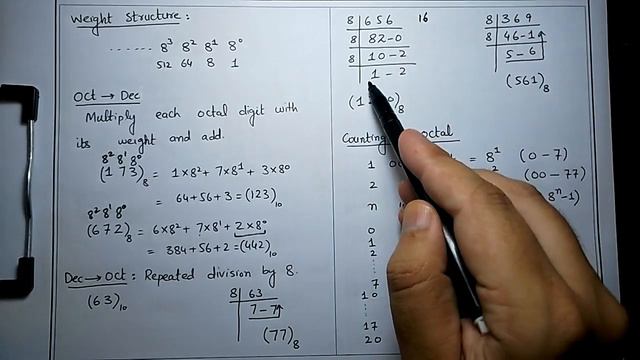 Weight Structure :
...... 8³ 8² 8¹ 8⁰
512 64 8 1
Oct → Dec
Multiply each octal digit with
its weight and add.
8² 8¹ 8⁰
(1 7 3)₈ = 1×8² + 7×8¹ + 3×8⁰
= 64+56+3 = (123)₁₀
8² 8¹ 8⁰
(6 7 2)₈ = 6×8² + 7×8¹ + 2×8⁰
= 384+56+2 = (442)₁₀
Dec → Oct : Repeated division by 8.
(63)₁₀
8 63
7 - 7
(77)₈
8 656 16
8 82 - 0
8 10 - 2
1 - 2
(1 0)₈
8 369
8 46 - 1
5 - 6
(561)₈
Counting octal
1 = 8¹ (0 - 7)
2 (00 - 77)
n 8ⁿ - 1)
0
1
2
⋮
7
10
⋮
17
20